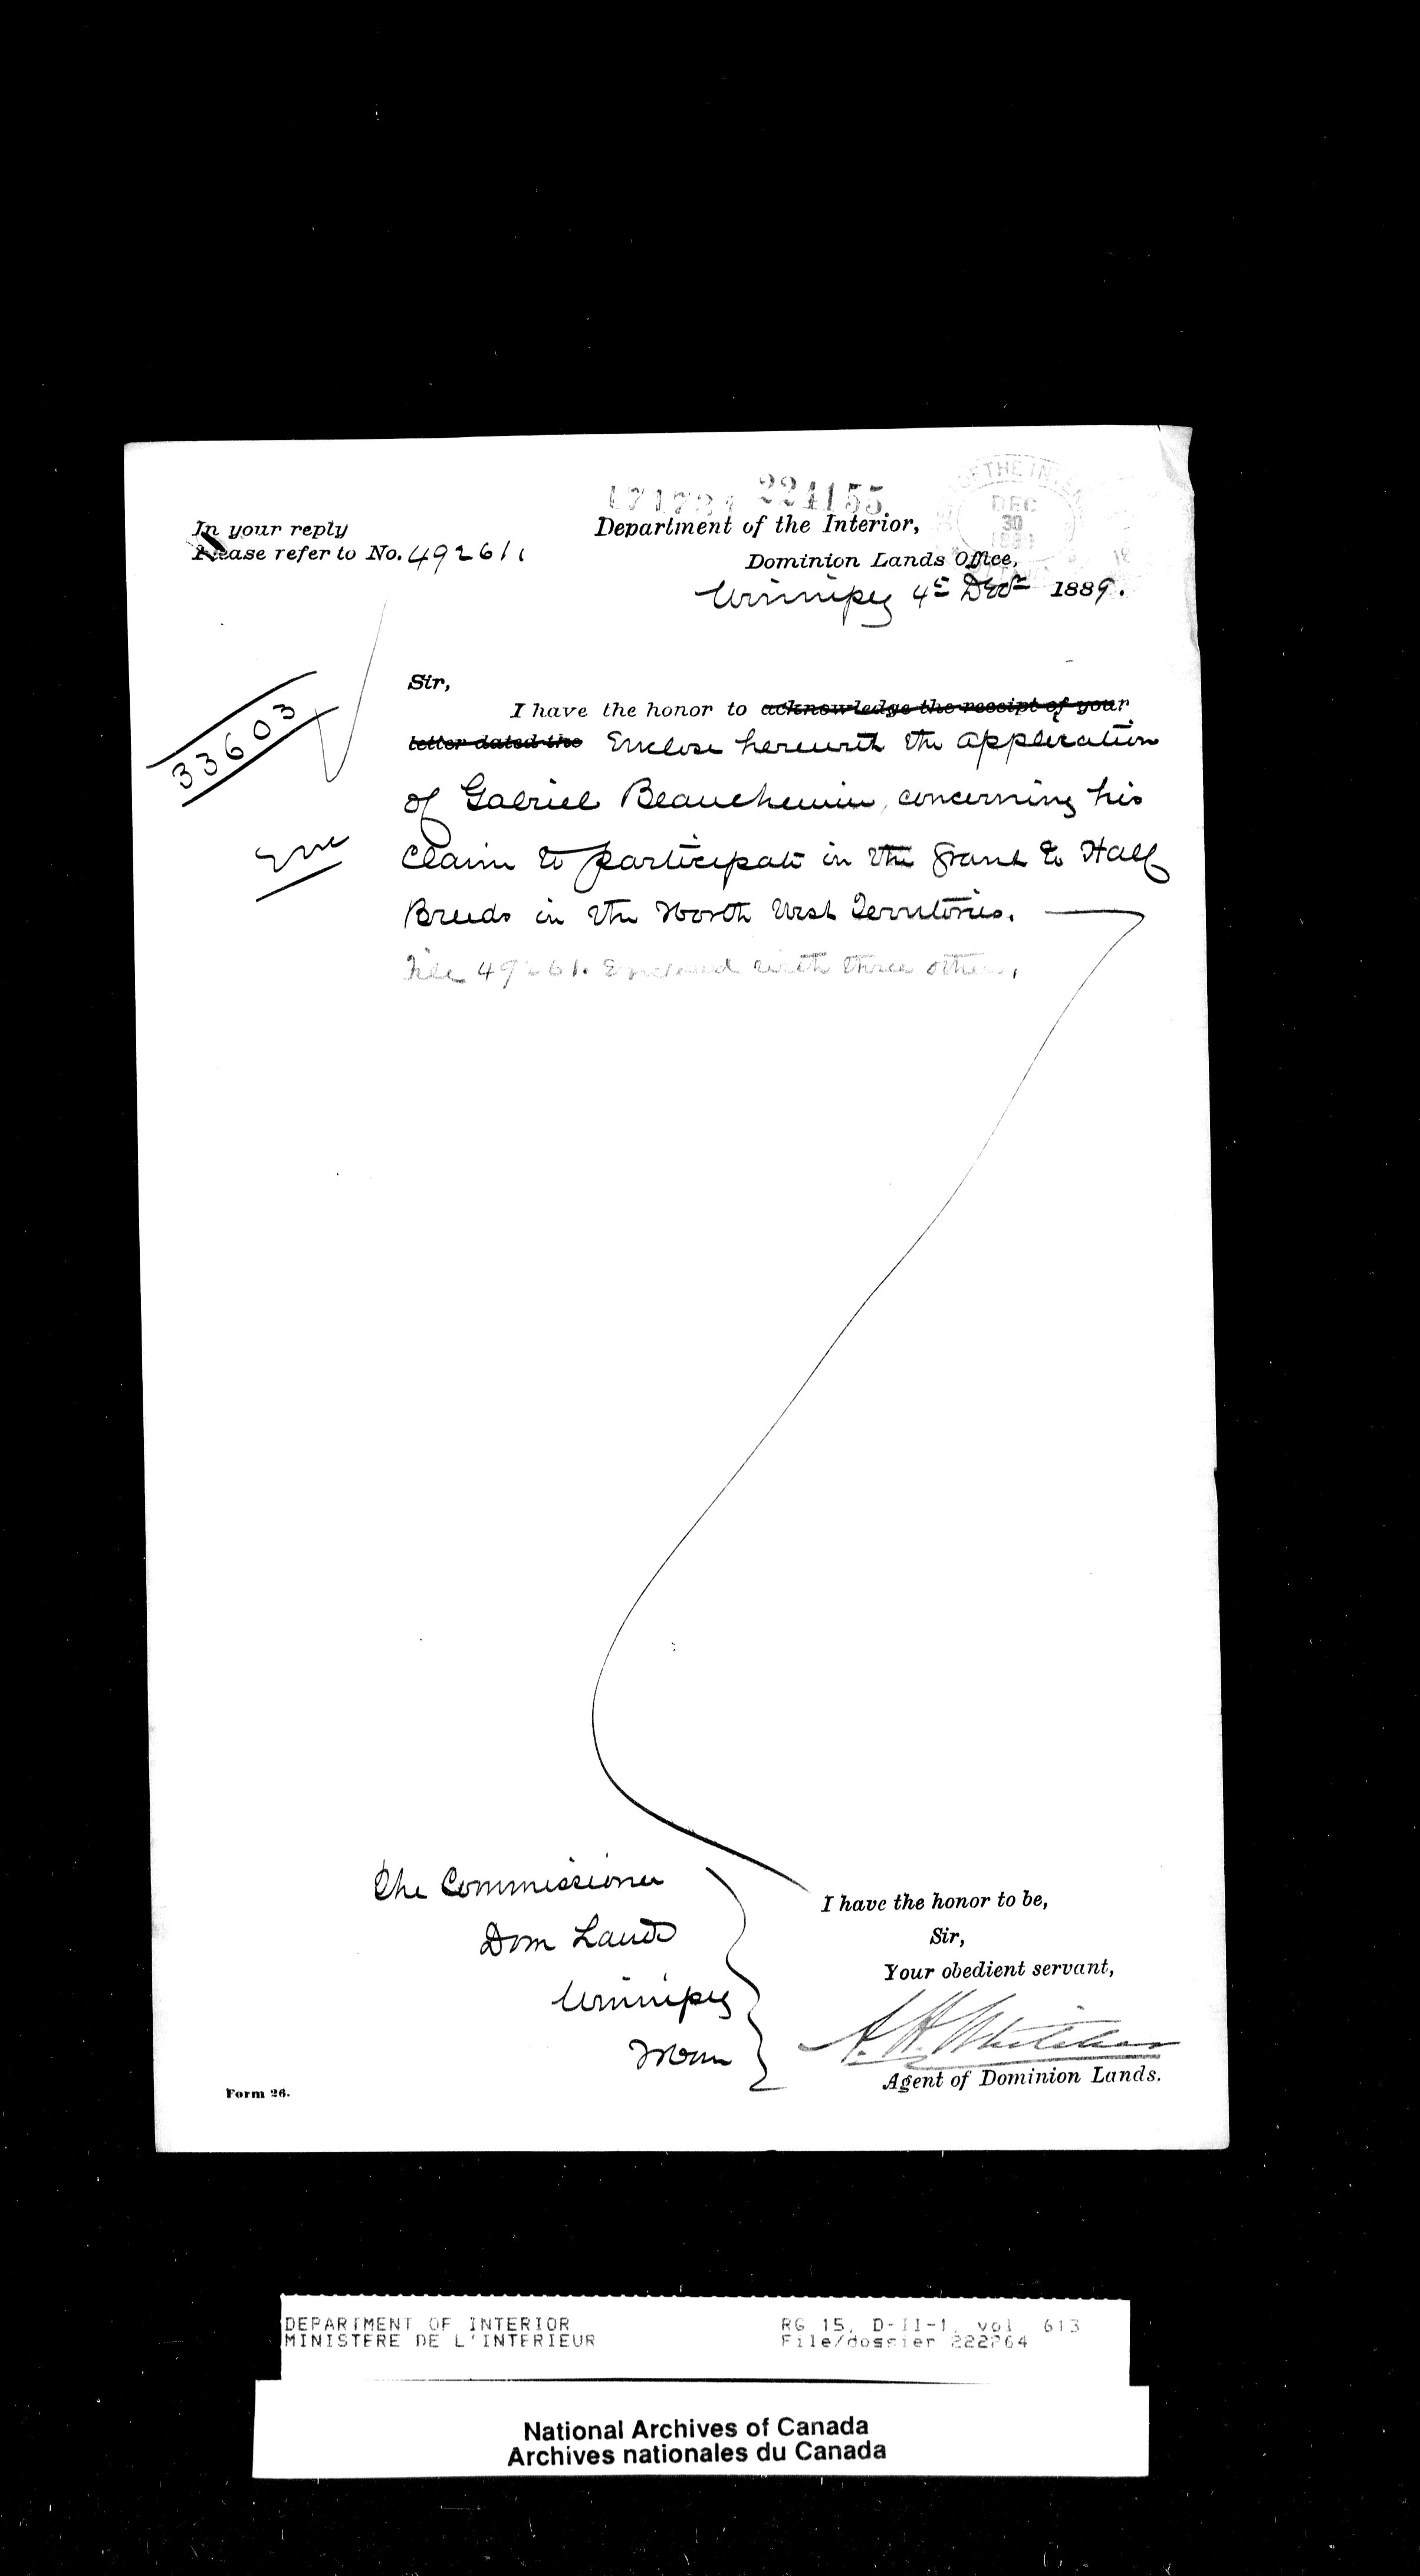 224155
OF THE INTER
DEC
30
In your reply
Please refer to No. 49261
Department of the Interior,
Dominion Lands Office,
Winnipeg 4th Decr 1889.
33603
Sir,
I have the honor to acknowledge the receipt of your
letter dated the Enclose herewith the application
of Gabriel Beauchemin, concerning his
claim to participate in the Grant to Half
Breeds in the North West Territories.
File 49261. Enclosed with three others.
The Commissioner
Dom Lands
Winnipeg
Man
I have the honor to be,
Sir,
Your obedient servant,
Agent of Dominion Lands.
Form 26.
DEPARTMENT OF INTERIOR
MINISTERE DE L'INTERIEUR
RG 15, D-II-1, vol 613
File/dossier 222264
National Archives of Canada
Archives nationales du Canada